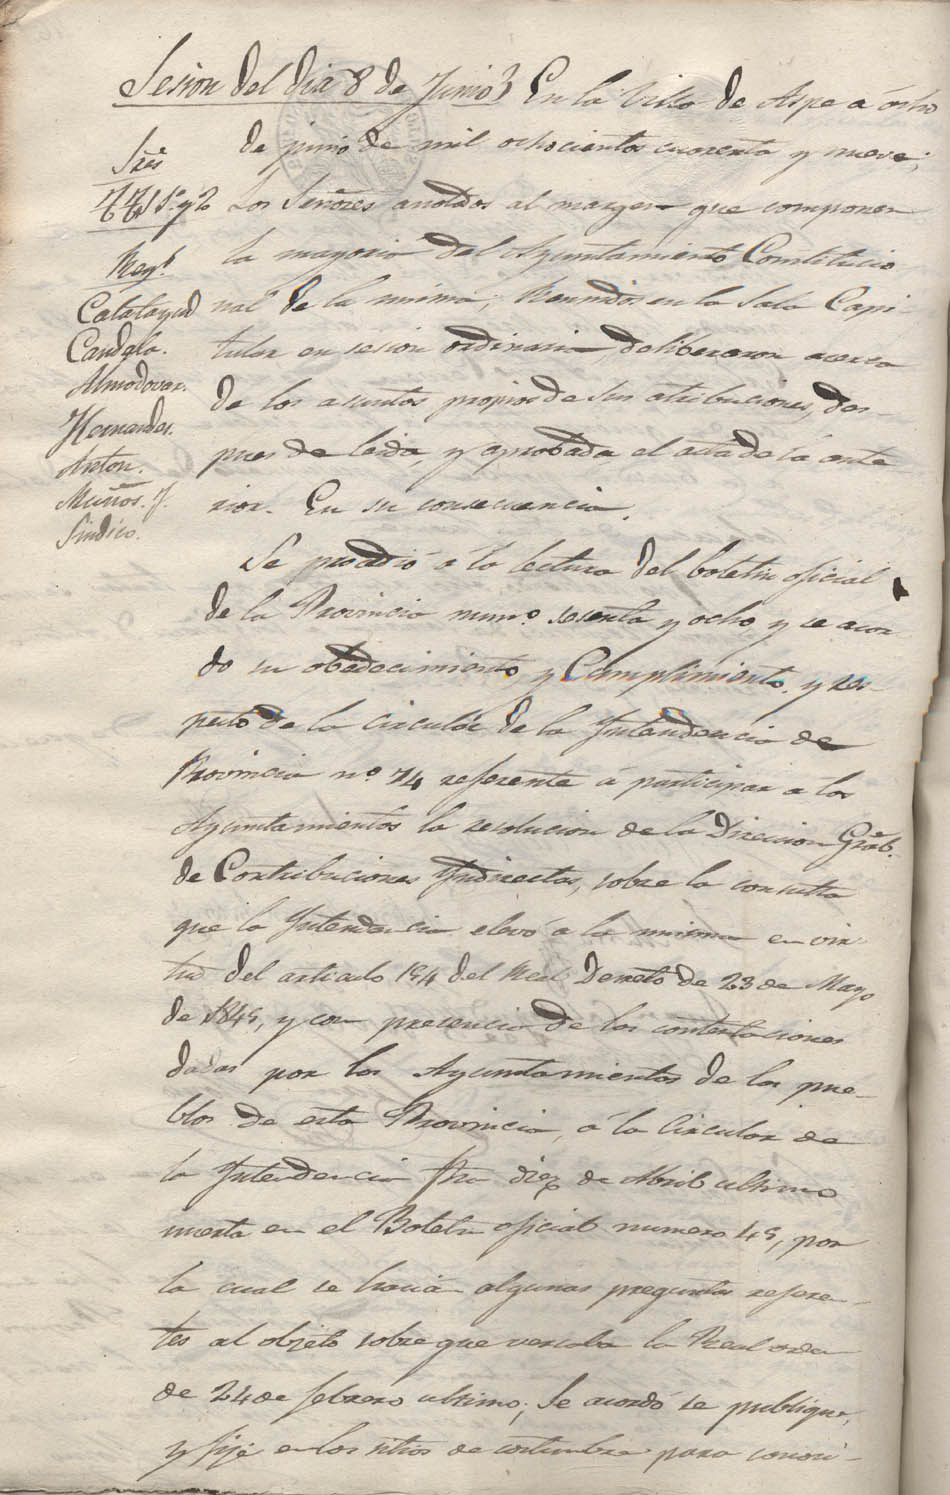 Sesion del dia 8 de Junio} En la Villa de Aspe a ócho
de junio de mil ochocientos cuarenta y nueve;
Los Señores anotados al margen que componen
la mayoria del Ayuntamiento Constitucio
nal de la misma, Reunidos en la Sala Capi-
tular en sesion ordinaria deliberaron acerca
de los asuntos propios de sus atribuciones, des-
pues de leida, y aprobada el acta de la ante
rior. En su consecuencia.
Sres
TT 1º y 2º
Regs
Calatayud
Candela.
Almodovar.
Hernandez.
Anton.
Muños. J.
Sindico.
Se procedió á la lectura del boletin oficial
de la Provincia numº sesenta y ocho, y se acor
do su obedecimiento, y Cumplimiento. y res-
pecto de la circular de la Intendencia de
Provincia nº 74 referente a participar a los
Ayuntamientos la resolucion de la Direccion Gral.
de Contribuciones Indirectas, sobre la consulta
que la Intendencia elevó a la misma en vir-
tud del articulo 154 del Real Decreto de 23 de Mayo
de 1845, y con presencia de las contestaciones
dadas por los Ayuntamientos de los pue-
blos de esta Provincia, á la Circular de
la Intendencia fha diez de Abril ultimo
incerta en el Boletin oficial numero 45, por
la cual se hacian algunas preguntas referen-
tes al objeto sobre que versaba la Real orden
de 24 de febrero ultimo; Se acordó se publique,
y fije en los sitios de costumbre para conoci-